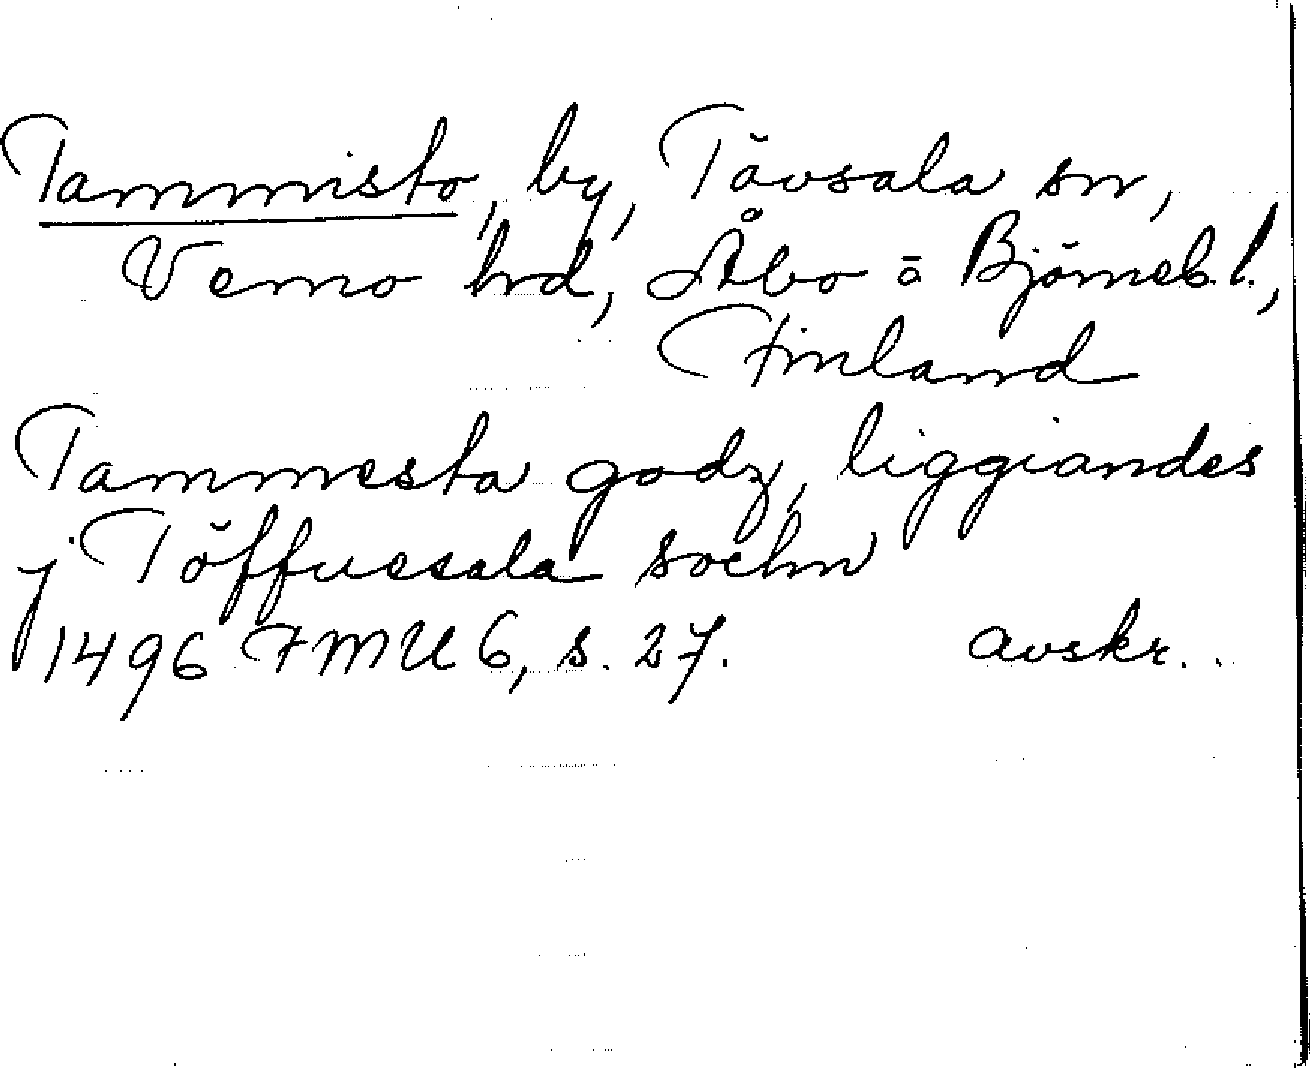 Tammisto, by, Tövsala sn,
Vemo hrd, Åbo o Björneb. l.,
Finland
Tammesta godz, liggiandes
j Töffuesala sochn
1496 FMU 6, s. 27. avskr.